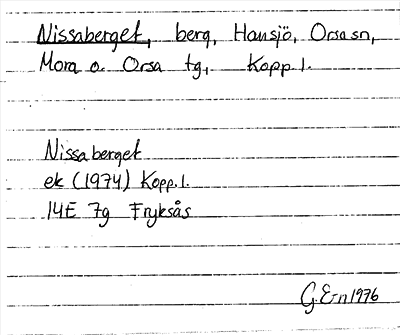 Nissaberget, berg, Hansjö, Orsa sn,
Mora o. Orsa tg, Kopp. l.
Nissaberget
ek (1974) Kopp. l.
14E 7g Fryksås
G. En 1976